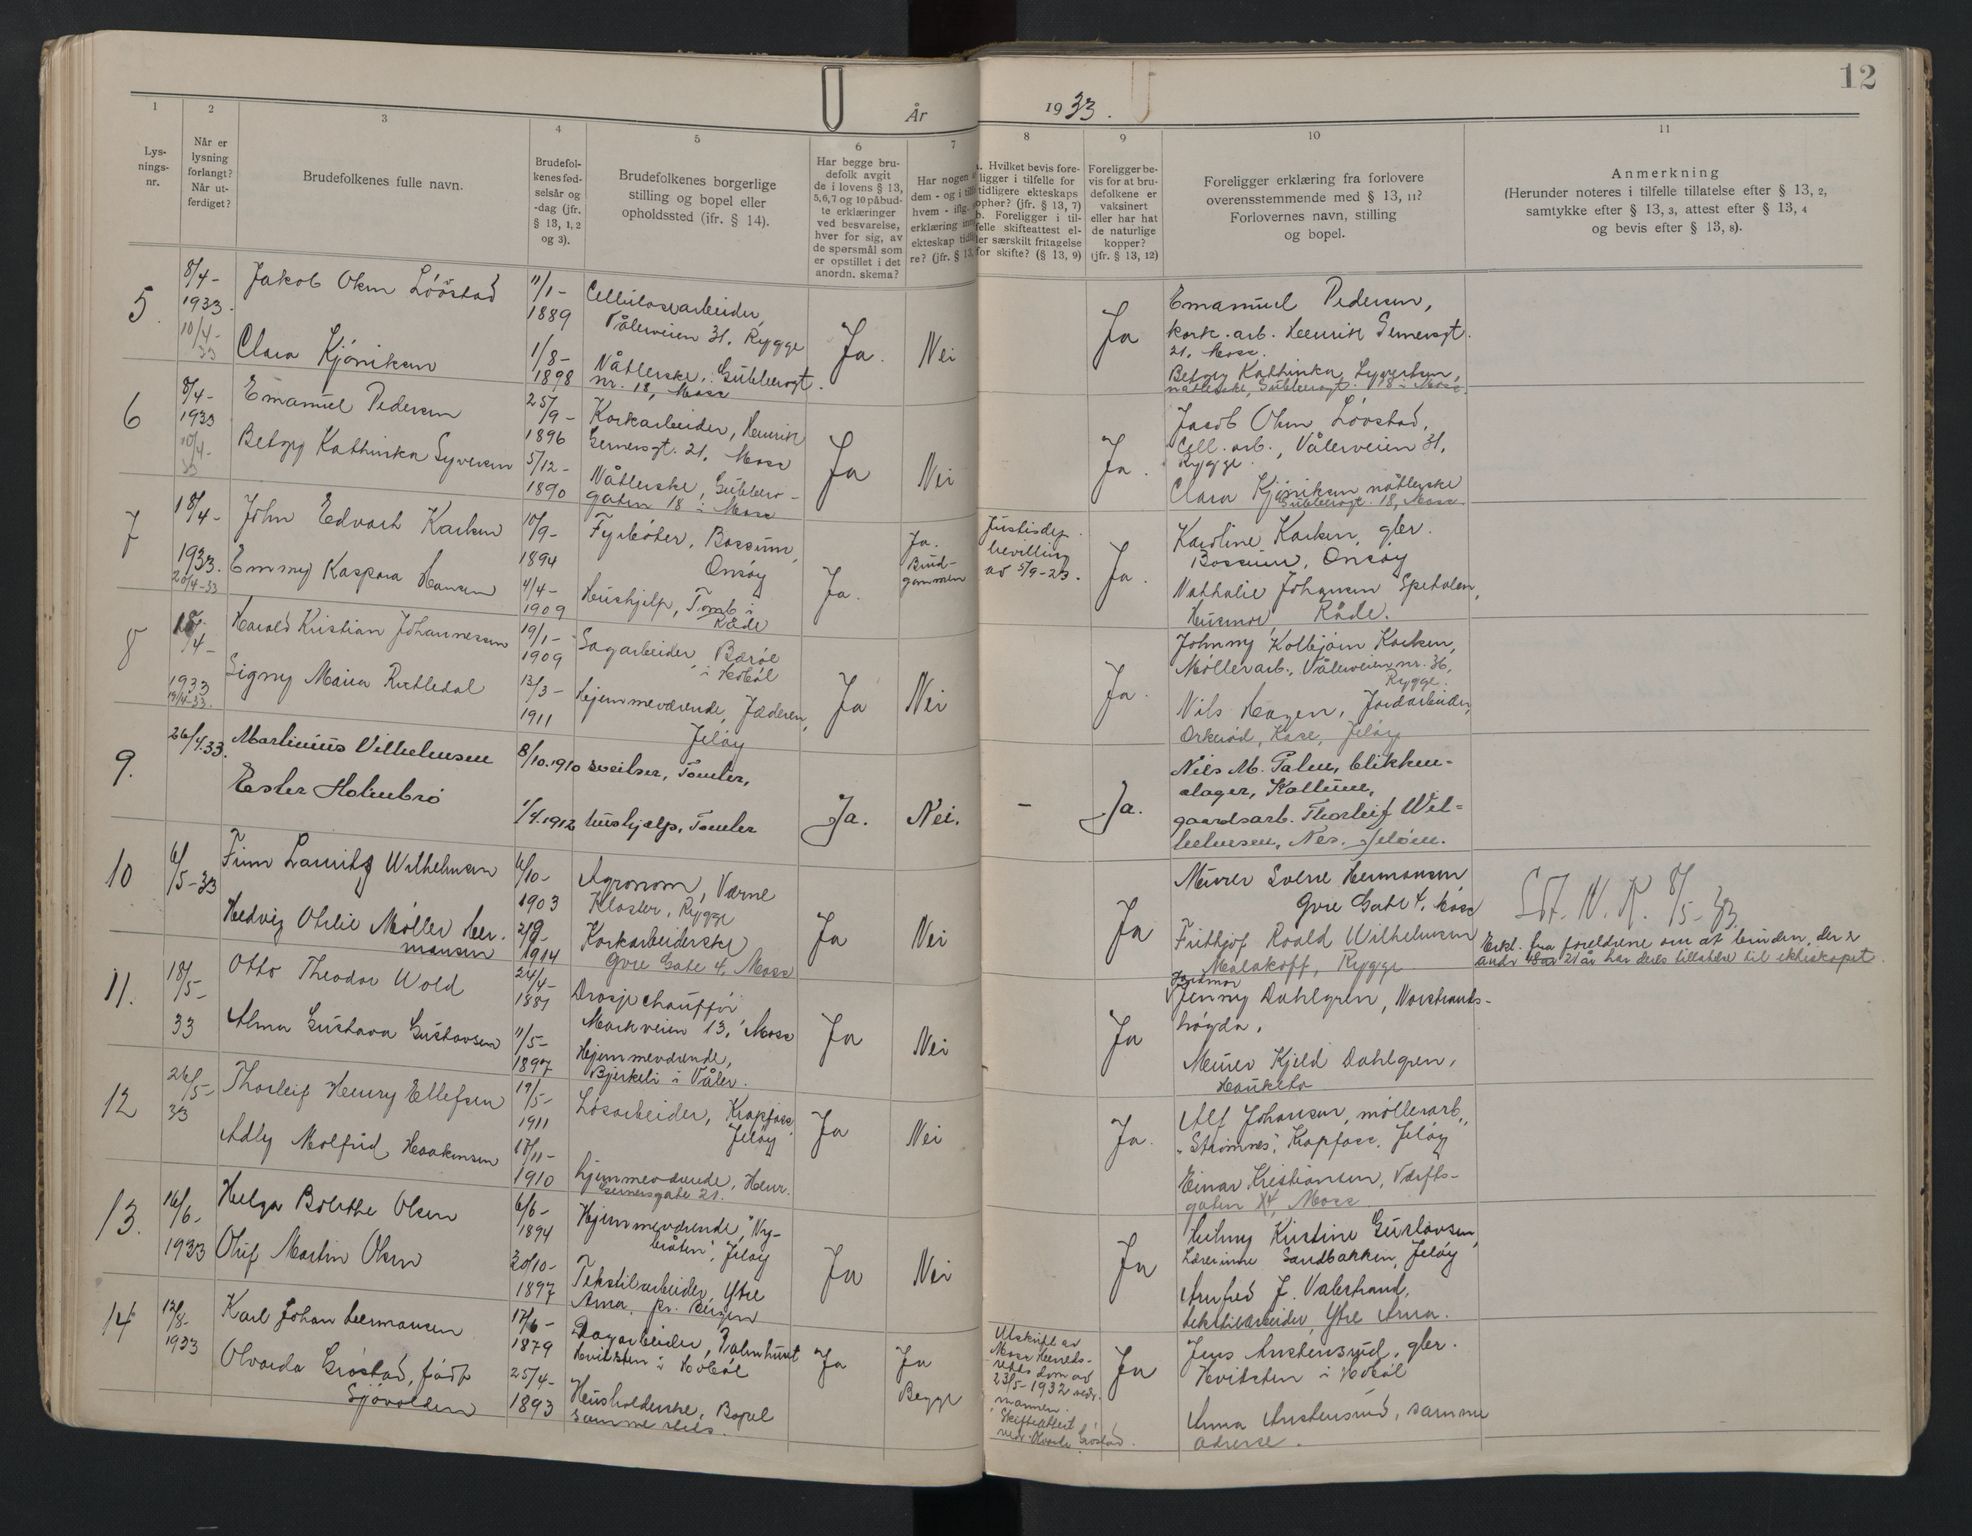 12
År 1933.
1
Lys-
nings-
nr.
2
Når er
lysning
forlangt?
Når ut-
ferdiget?
3
Brudefolkenes fulle navn.
4
Brudefol-
kenes fød-
selsår og
-dag (jfr.
§ 13, 1, 2
og 3).
5
Brudefolkenes borgerlige
stilling og bopel eller
opholdssted (ifr. § 14).
6
Har begge bru-
defolk avgit
de i lovens § 13,
5,6,7 og 10 påbud-
te erklæringer
ved besvarelse,
hver for sig, av
de spørsmål som
er opstillet i det
anordn. skema?
7
Har nogen a
dem - og i tilf
hvem - iflg.
erklæring inng
ekteskap tidli
re? (jfr. § 13,
8
a. Hvilket bevis fore-
ligger i tilfelle for
tidligere ekteskaps
ophør? (jfr. § 13, 7)
b. Foreligger i til-
felle skifteattest el-
ler særskilt fritagelse
for skifte? (§ 13, 9)
9
Foreligger be-
vis for at bru-
defolkene er
vaksinert
eller har hat
de naturlige
kopper?
(jfr. § 13, 12)
10
Foreligger erklæring fra forlovere
overensstemmende med § 13, 11?
Forlovernes navn, stilling
og bopel.
11
Anmerkning
(Herunder noteres i tilfelle tillatelse efter § 13, 2,
samtykke efter § 13, 3, attest efter § 13, 4
og bevis efter § 13, 8).
5
8/4-
1933.
10/4-
33
Jakob Olsen Lövstad
Clara Kjöniksen
11/1-
1889
1/8-
1898
Cellulosearbeider,
Vålerveien 31, Rygge
Nåtlerske, Gubberogt.
nr. 18, Moss
Ja.
Nei
Ja
Emanuel Pedersen,
kork.arb. Henrik Gernersgt.
21, Moss.
Betzy Kathinka Syvertsen,
nåtlerske, Gubberogt. 18 i Moss
6
8/4-
1933
10/4-
33
Emanuel Pedersen
Betzy Kathinka Syversen
25/9-
1896
5/12-
1890
Korkarbeider, Henrik
Gernersgt. 21, Moss
Nåtlerske, Gubbero-
gaten 18 i Moss
Ja
Nei
Ja.
Jacob Olsen Lövstad,
Cell.arb., Vålerveien 31,
Rygge.
Clara Kjöniksen nåtlerske
Gubberogt. 18, Moss
7
18/4-
1933.
20/4-33
John Edvart Karlsen
Emmy Kaspara Hansen
10/9-
1894
4/4-
1909
Fyrböter, Bossum,
Onsöy
Hushjelp, Tomb i
Råde
Ja.
Ja.
Brud-
gommen
Justisdep.
bevilling
av 5/9-23.
Ja.
Karoline Karlsen, gbr.
Bossum, Onsöy
Nathalie Johansen Spetalen,
Husmor Råde.
8
18/4-
1933
19/4-33.
Harald Kristian Johannessen
Signy Maria Rutledal
19/1-
1909
13/3-
1911
Sagarbeider, Bæröe
i Hobøl
Hjemmeværende, Jæderen,
Jeløy
Ja
Nei
Ja.
Johnny Kolbjörn Karlsen,
Möllerarb., Vålerveien nr. 36,
Rygge.
Nils Hagen, Jordarbeider,
Orkeröd, Kase, Jeløy
9.
26/4.33.
Martinius Vilhelmsen
Ester Holmbrö
8/10.1910
1/4.1912
sveitser, Tomler,
hushjelp, Tomler
Ja.
Nei.
-
Ja.
Nils M. Palm, blikken-
slager, Kallum,
gaardsarb. Thorleif Wil-
helmsen, Nes, Jelöen.
10
6/5-33
Finn Lauritz Wilhelmsen
Hedvig Otilie Möller Her-
mansen
6/10-
1903
21/9-
1914
Agronom, Værne
Kloster, Rygge
Korkarbeiderske
Övre Gate 4, Moss
Ja
Nei
Ja
Murer Sverre Hermansen
Övre Gate 4, Moss
Frithjof Roald Wilhelmsen
Malakoff, Rygge
Sdt. N. K. 8/5-33.
Erkl. fra foreldrene om at bruden, der er
under 21 år har deres tillatelse til ekteskapet.
11.
18/5-
33
Otto Theodor Wold
Alma Gustava Gustavsen
24/4-
1881
11/5-
1897
Drosjechaufför
Markveien 13, Moss
Hjemmeværende,
Bjerkeli i Våler.
Ja
Nei
Ja
Jordmor
Jenny Dahlgren, Norstrands-
högda,
Murer Kjeld Dahlgren,
Hauketo
12
26/5-
33
Thorleif Henry Ellefsen
Adly Molfrid Haakensen
19/5-
1911
17/11-
1910
Lösarbeider, Krapfoss,
Jeløy
hjemmeværende, Henr.
Gernersgate 21.
Ja
Nei
Ja.
Alf Johansen, möllerarb.,
"Strömnes", Krapfoss, Jeløy
Einar Kristiansen, Værfts-
gaten 14, Moss
13.
16/6-
1933
Helga Bolethe Olsen
Oluf Martin Olsen
6/6-
1894
30/10-
1897
Hjemmeværende, "Ny-
bråten", Jeløy
Tekstilarbeider, Ytre
Arna, pr. Bergen
Ja
Nei
Ja
Kristine Gustavsen,
Lærerinne Sandbakken, Jeløy
Arnfred J. Valestrand,
tekstilarbeider, Ytre Arna.
14
12/8-
1933
Karl Johan Hermansen
Olvarda Gröstad, född
Sjövolden
17/6-
1879
25/4-
1893
Dagarbeider, Palmhuset
Hvitsten i Hobøl
Husholderske, Bopel
samme sted.
Ja
Ja
Begge
Utskrift av
Moss Herreds-
retts dom av
23/5-1932 vedr.
mannen.
Skifteattest
vedr. Olvarda Gröstad.
Ja
Jens Austensrud, gbr.
Hvitsten i Hobøl
Anna Austensrud, samme
adresse.